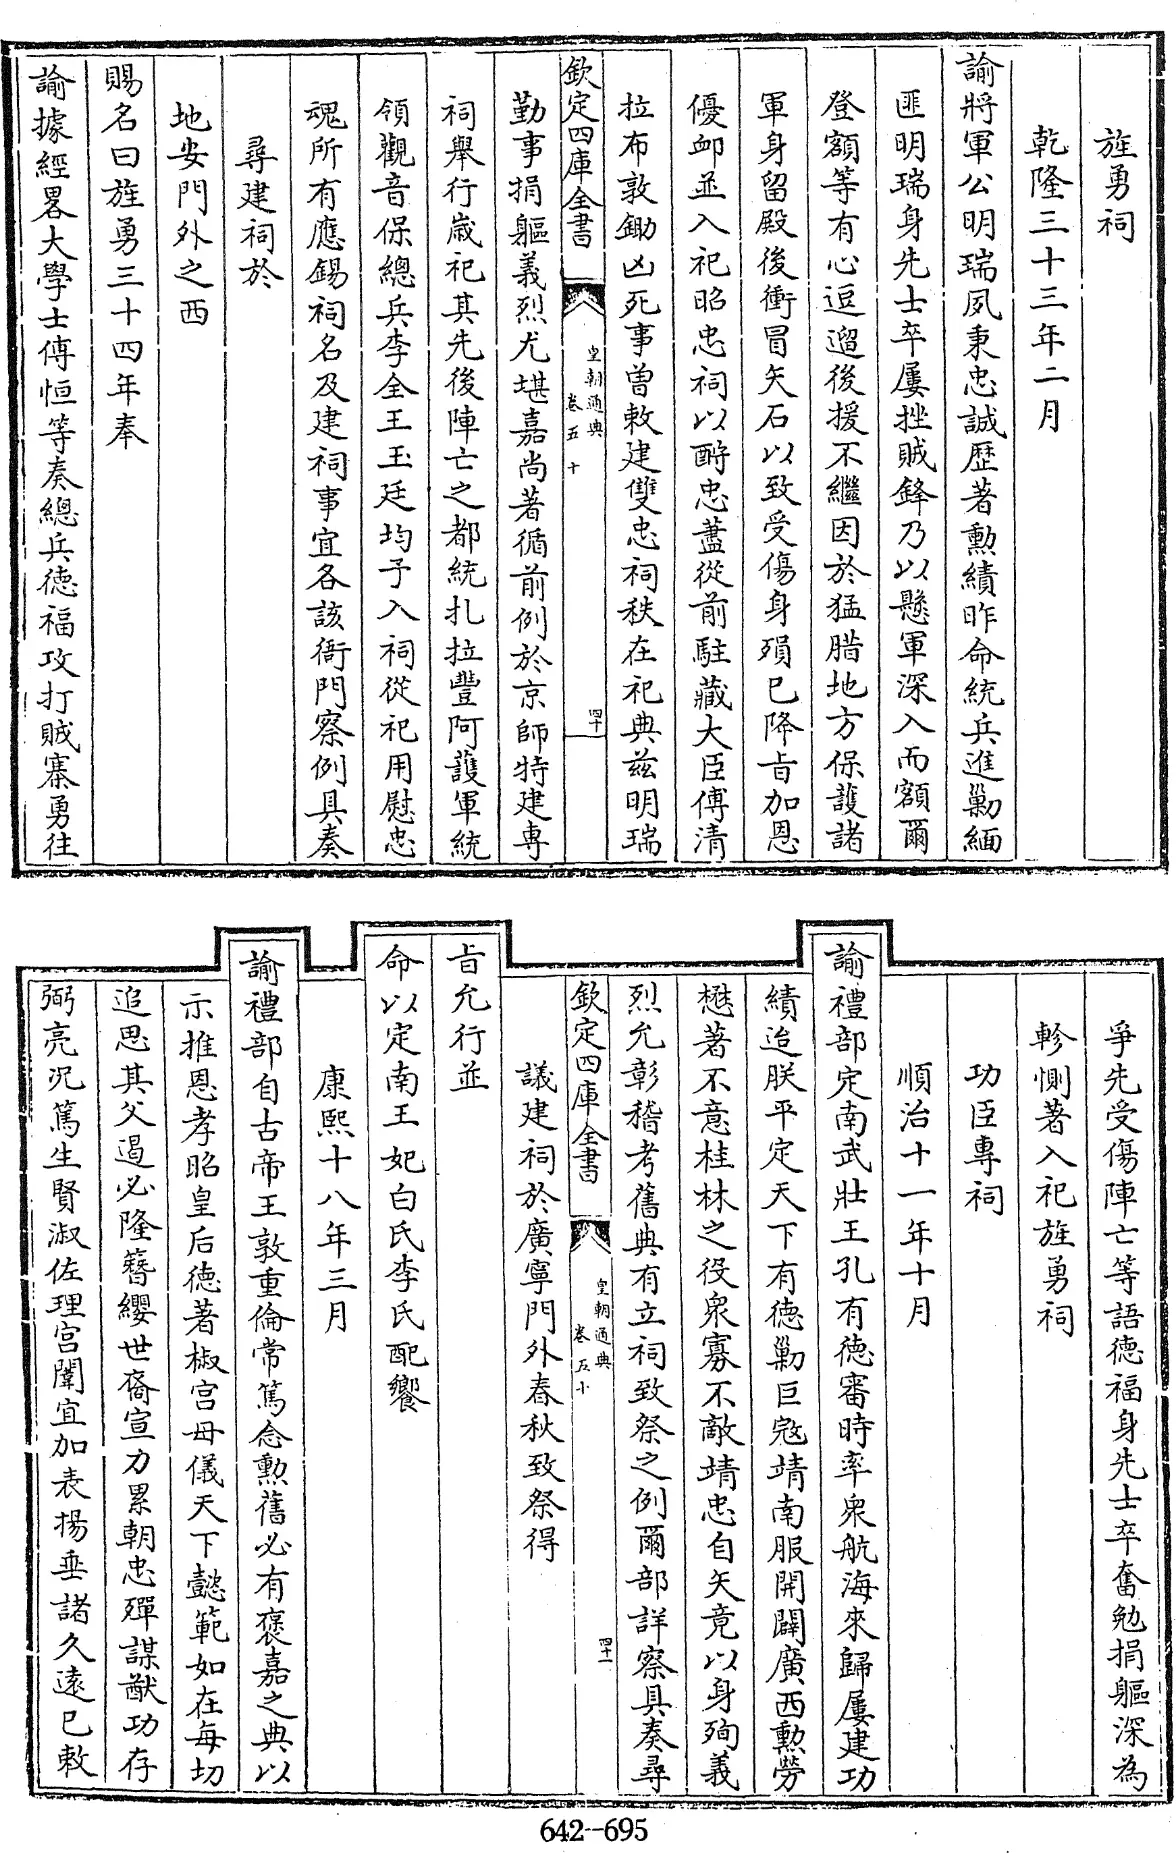 旌勇祠
乾隆三十三年二月
諭將軍公明瑞夙秉忠誠歴著勲績昨命統兵進勦緬
匪明瑞身先士卒屢挫賊鋒乃以懸軍深入而額爾
登額等有心逗遛後援不繼因於猛腊地方保護諸
軍身留殿後衝冒矢石以致受傷身殞已降㫖加恩
優䘏並入祀昭忠祠以酧忠藎從前駐藏大臣傅清
拉布敦鋤凶死事曽敕建雙忠祠秩在祀典兹明瑞
欽定四庫全書
皇朝通典
卷五十
四十
勤事捐軀義烈尤堪嘉尚著循前例於京師特建專
祠舉行嵗祀其先後陣亡之都統扎拉豐阿護軍統
領觀音保總兵李全王玉廷均予入祠從祀用慰忠
魂所有應錫祠名及建祠事宜各該衙門察例具奏
尋建祠於
地安門外之西
賜名曰旌勇三十四年奉
諭據經畧大學士傅恒等奏總兵德福攻打賊寨勇往
爭先受傷陣亡等語德福身先士卒奮勉捐軀深為
軫惻著入祀旌勇祠
功臣專祠
順治十一年十月
諭禮部定南武壯王孔有德審時率衆航海來歸屢建功
績迨朕平定天下有德勦巨宼靖南服開闢廣西勲勞
懋著不意桂林之役衆寡不敵靖忠自矢竟以身殉義
烈允彰稽考舊典有立祠致祭之例爾部詳察具奏尋
欽定四庫全書
皇朝通典
卷五十
四十一
議建祠於廣寧門外春秋致祭得
㫖允行並
命以定南王妃白氏李氏配饗
康熙十八年三月
諭禮部自古帝王敦重倫常篤念勲舊必有褒嘉之典以
示推恩孝昭皇后德著椒宫母儀天下懿範如在每切
追思其父遏必隆簪纓世裔宣力累朝忠殫謀猷功存
弼亮况篤生賢淑佐理宫闈宜加表揚垂諸久遠已敕
642-695